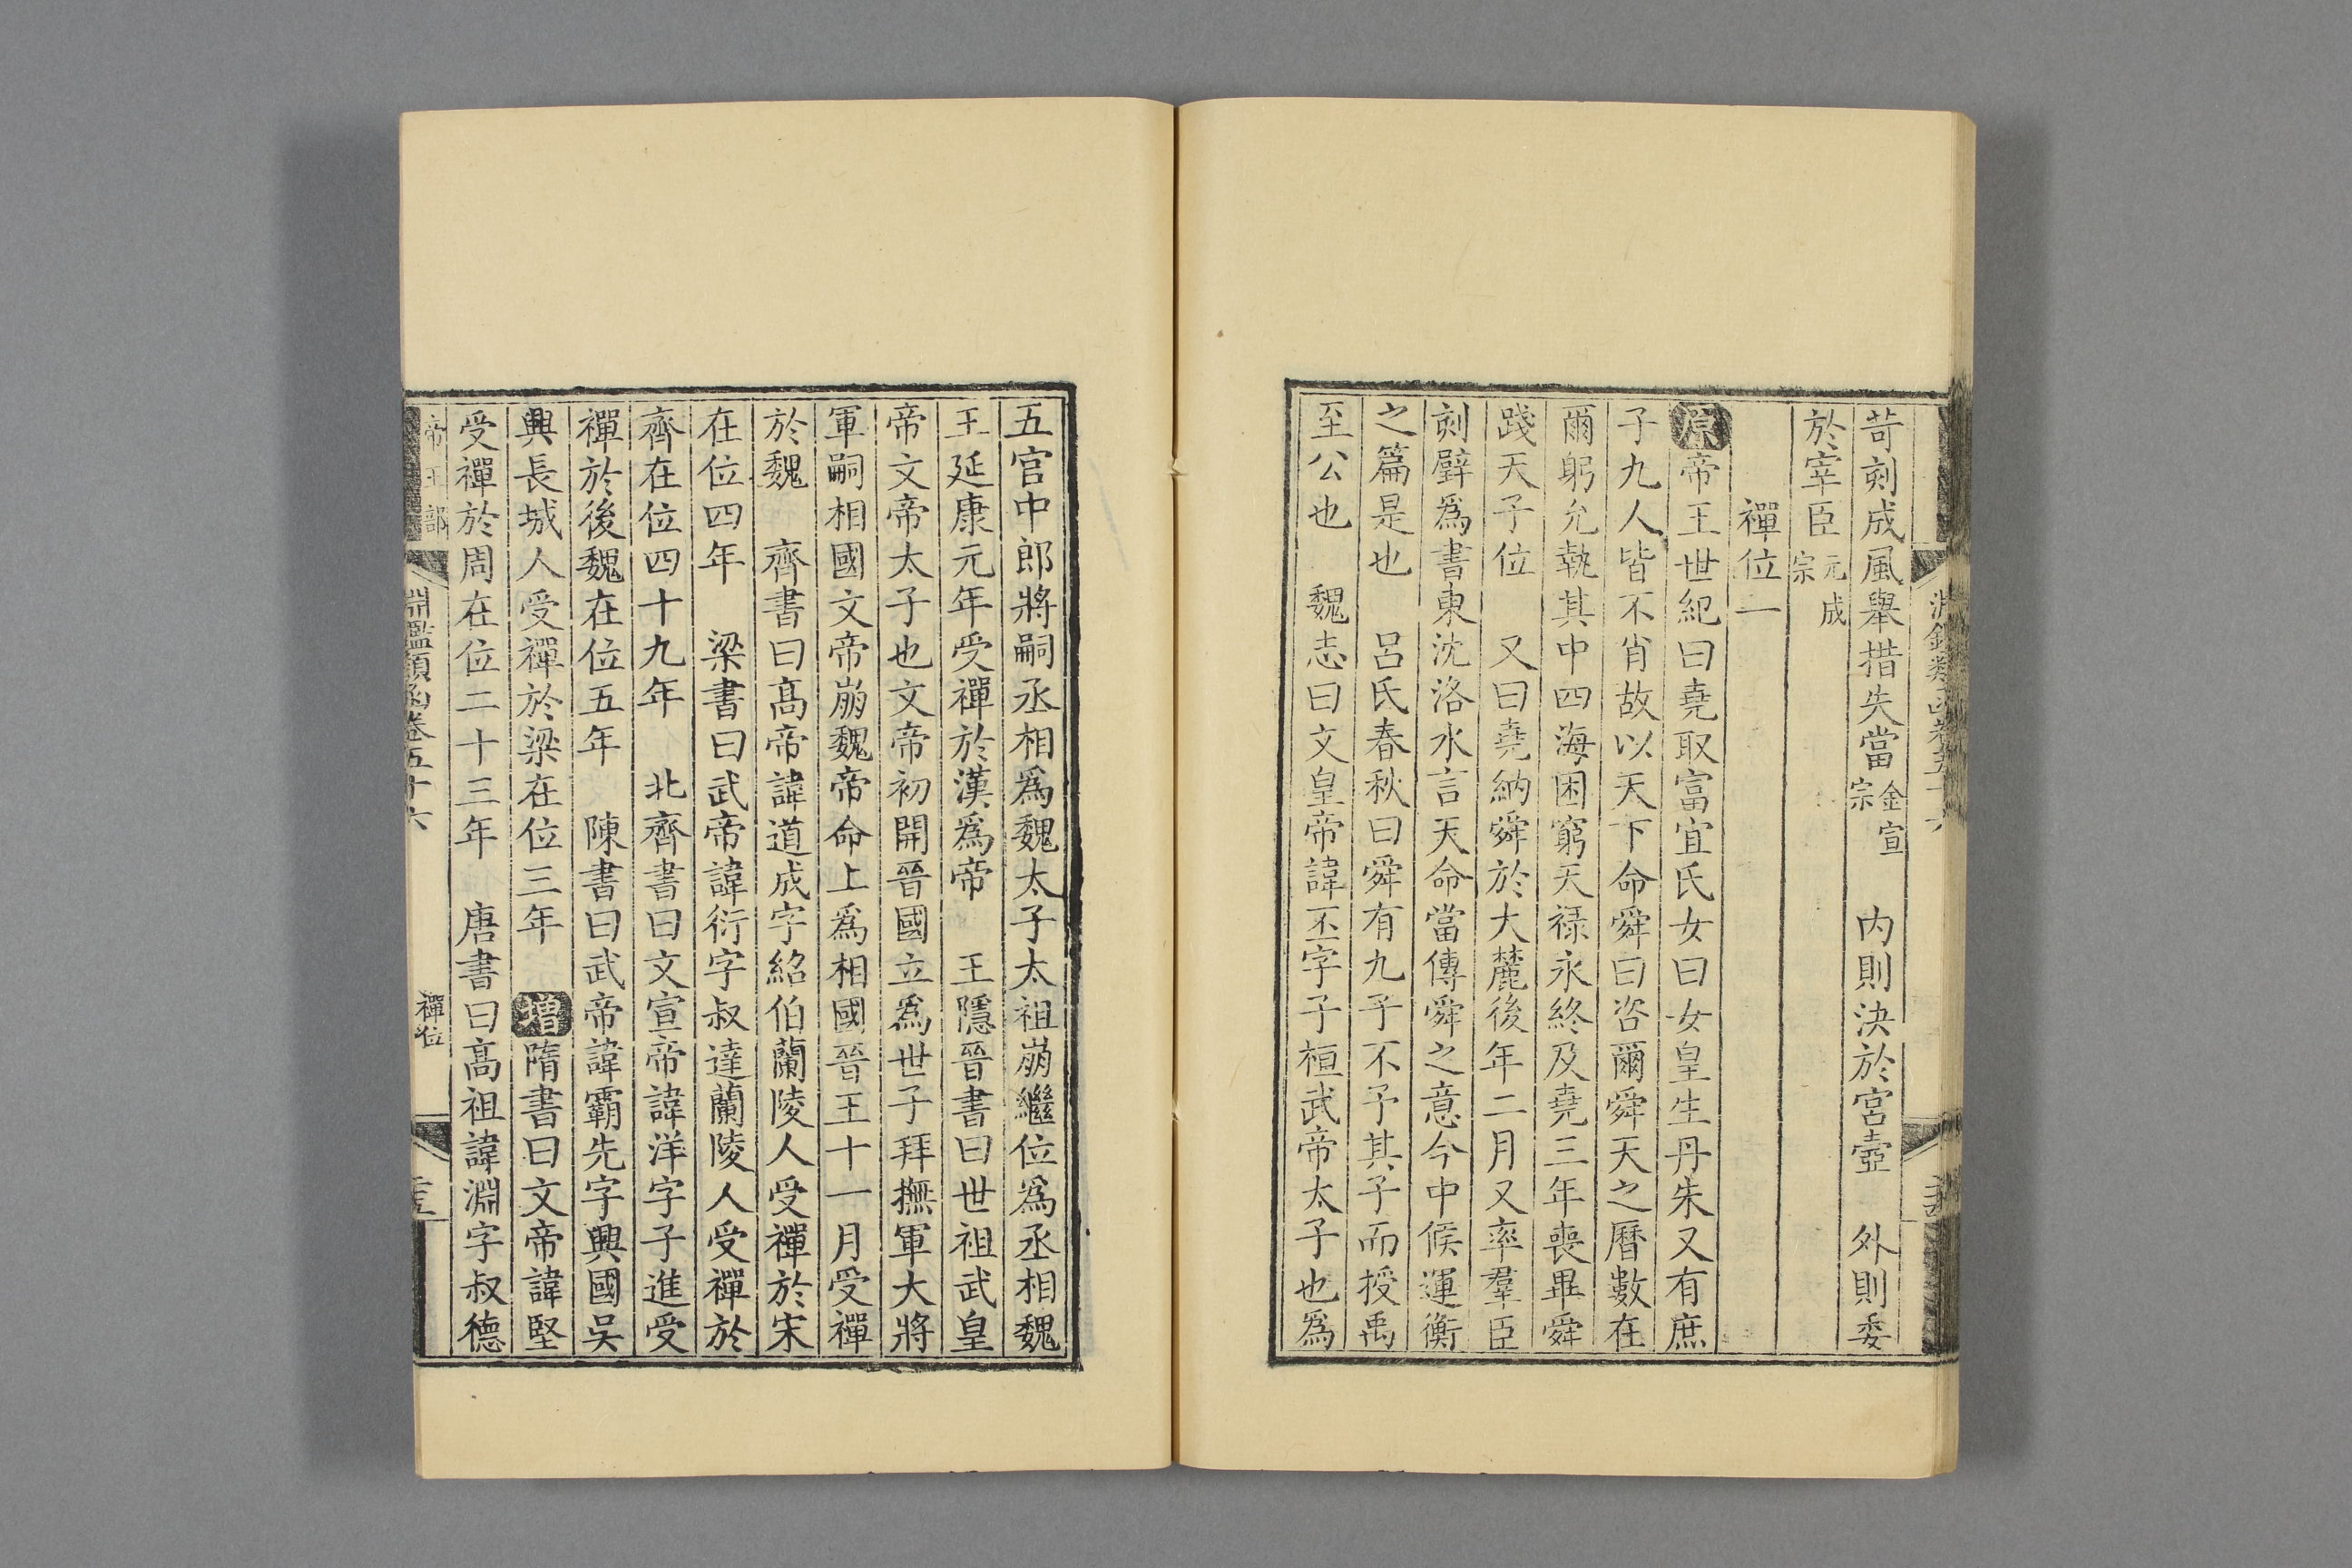 苛刻成風舉措失當金宣宗　内則決於宮壼　外則委
於宰臣元成宗
禪位一
原帝王世紀曰堯取富宜氏女曰女皇生丹朱又有庶
子九人皆不肖故以天下命舜曰咨爾舜天之曆數在
爾躬允執其中四海困窮天禄永終及堯三年喪畢舜
踐天子位　又曰堯納舜於大麓後年二月又率羣臣
刻璧爲書東沈洛水言天命當傳舜之意今中候運衡
之篇是也　呂氏春秋曰舜有九子不予其子而授禹
至公也　魏志曰文皇帝諱丕字子桓武帝太子也爲
五官中郎將嗣丞相爲魏太子太祖崩繼位爲丞相魏
王延康元年受禪於漢爲帝　王隱晉書曰世祖武皇
帝文帝太子也文帝初開晉國立爲世子拜撫軍大將
軍嗣相國文帝崩魏帝命上爲相國晉王十一月受禪
於魏　齊書曰高帝諱道成字紹伯蘭陵人受禪於宋
在位四年　梁書曰武帝諱衍字叔達蘭陵人受禪於
齊在位四十九年　北齊書曰文宣帝諱洋字子進受
禪於後魏在位五年　陳書曰武帝諱霸先字興國吳
興長城人受禪於梁在位三年　增隋書曰文帝諱堅
受禪於周在位二十三年　唐書曰高祖諱淵字叔德
帝王部
淵鑑類函卷五十六
禪位